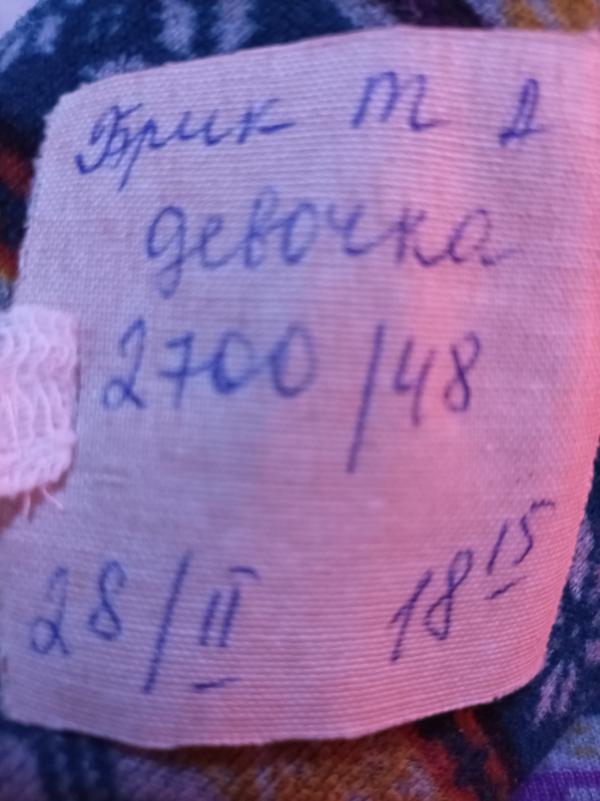 Брик Т Д
девочка
2700/48
28/II 18 15